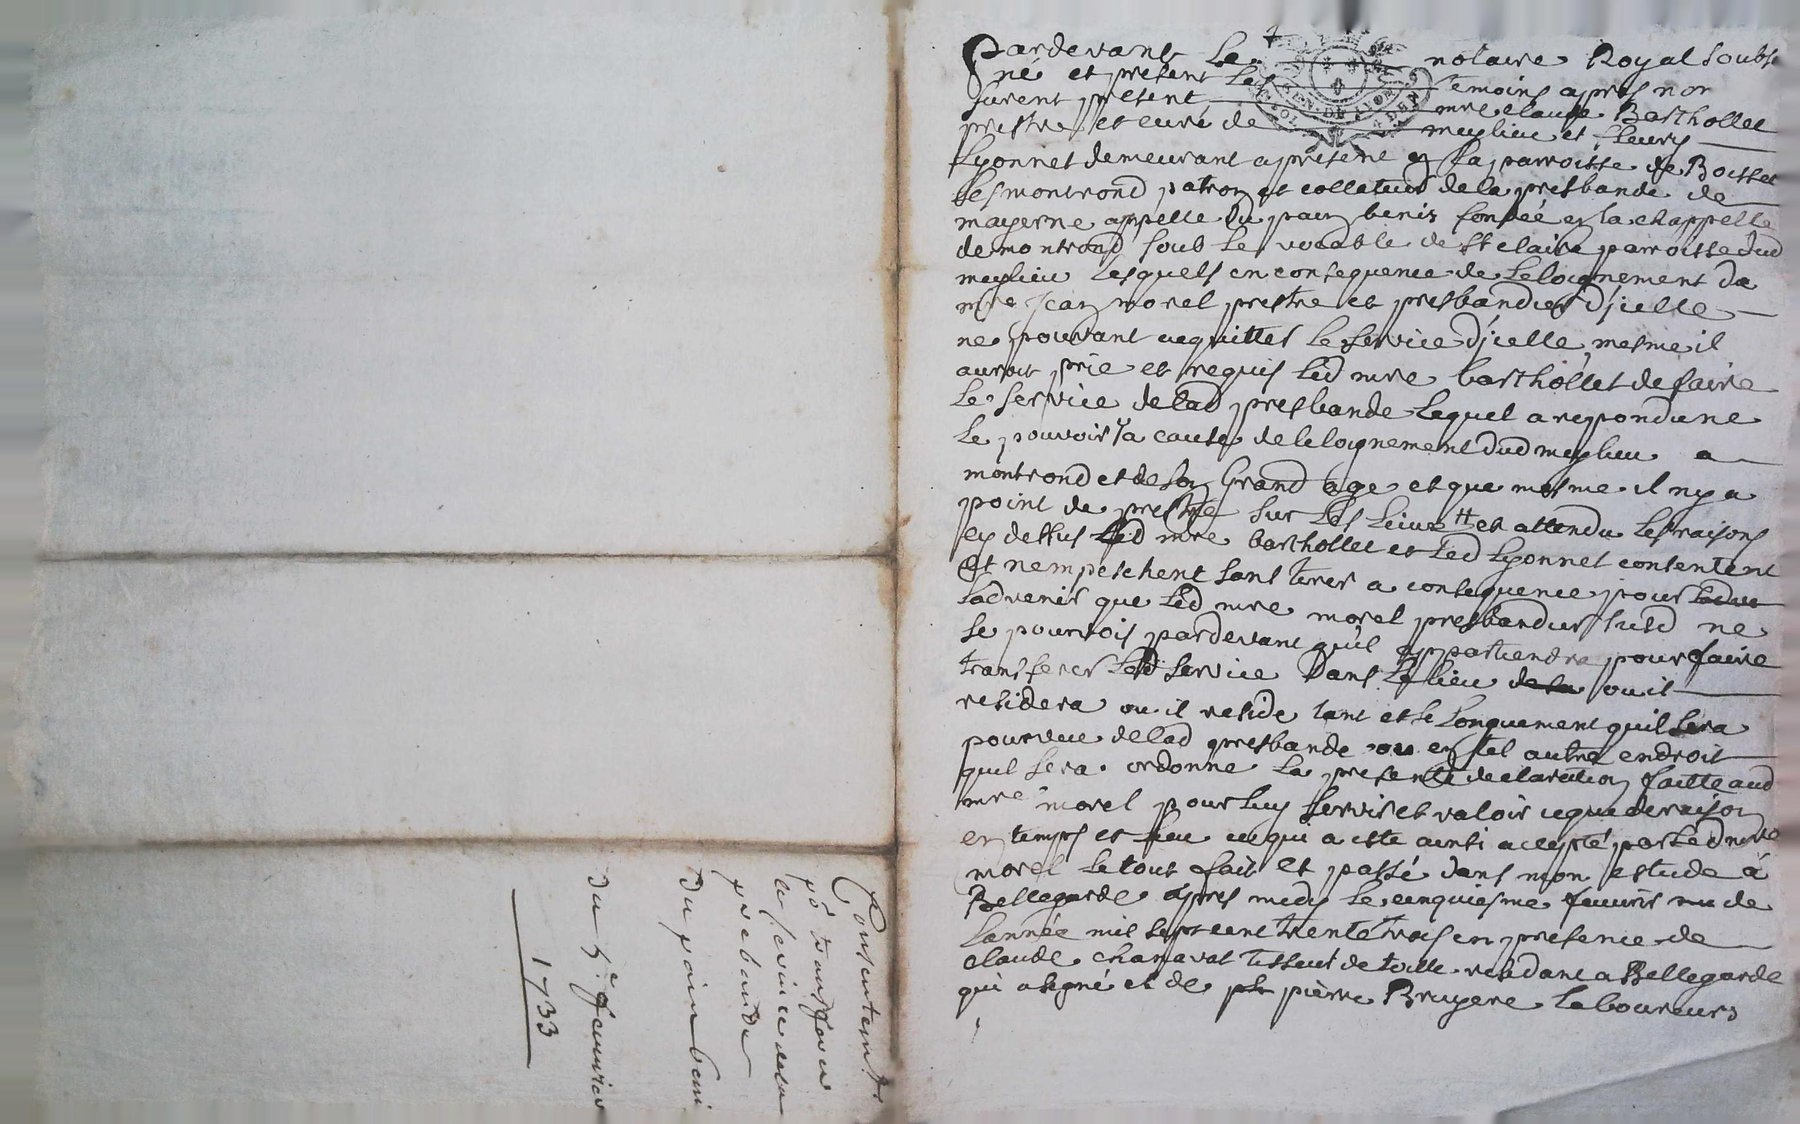 Pardevant le notaire Royal soubsi
né et present les temoins apres nom
furent present mre claude Barthollet
prestre et curé de meylieu et fleury
Lyonnet demeurant a present en la parroisse de Boisset
les montrond patron et collateur de la presbande de
mayerne appellé du pain benis fondée en la chappelle
de montrond soub le vocable de Ste claire parroisse dud
meylieu lesquels en consequence de leloignement de
mre Jean morel prestre et presbandier d'jcelle
ne pouvant acquitter le service d'jcelle mesme il
auroit prié et requis led mre barthollet de faire
le service de lad presbande lequel a repondu ne
le pouvoir a cause de leloignement dud meylieu a
montrond et de son Grand age et que mesme il ny a
point de prestre sur les lieux et attendu les raisons
cy dessus led mre barthollet et led Lyonnet consentent
et nempeschent sans tirer a consequence pour
ladvenir que led mre morel presbandier susd ne
se pourvois pardevant qu'il appartiendra pour faire
transferer led service dans le lieu de sa ou il
residera ou il reside tant et si longuement quil sera
pourveu de lad presbande ou en tel autre endroit
quil sera ordonné la presente declaration faitte aud
mre morel pour luy servir et valoir ce que de raison
en temps et lieu ce qui a esté ainsi accepté par led mre
morel le tout fait et passé dans mon estude à
Bellegarde apres midy le cinquiesme fevvrir de
lannée mil sept cent trente trois en presence de
claude chanavat tisseur de toille residant a Bellegarde
qui a signé et de pierre Bruyere laboureurs
Consentem.t
po transferer
le service de la
prebande
Du pain beni
du 5.e feuvrier
1733